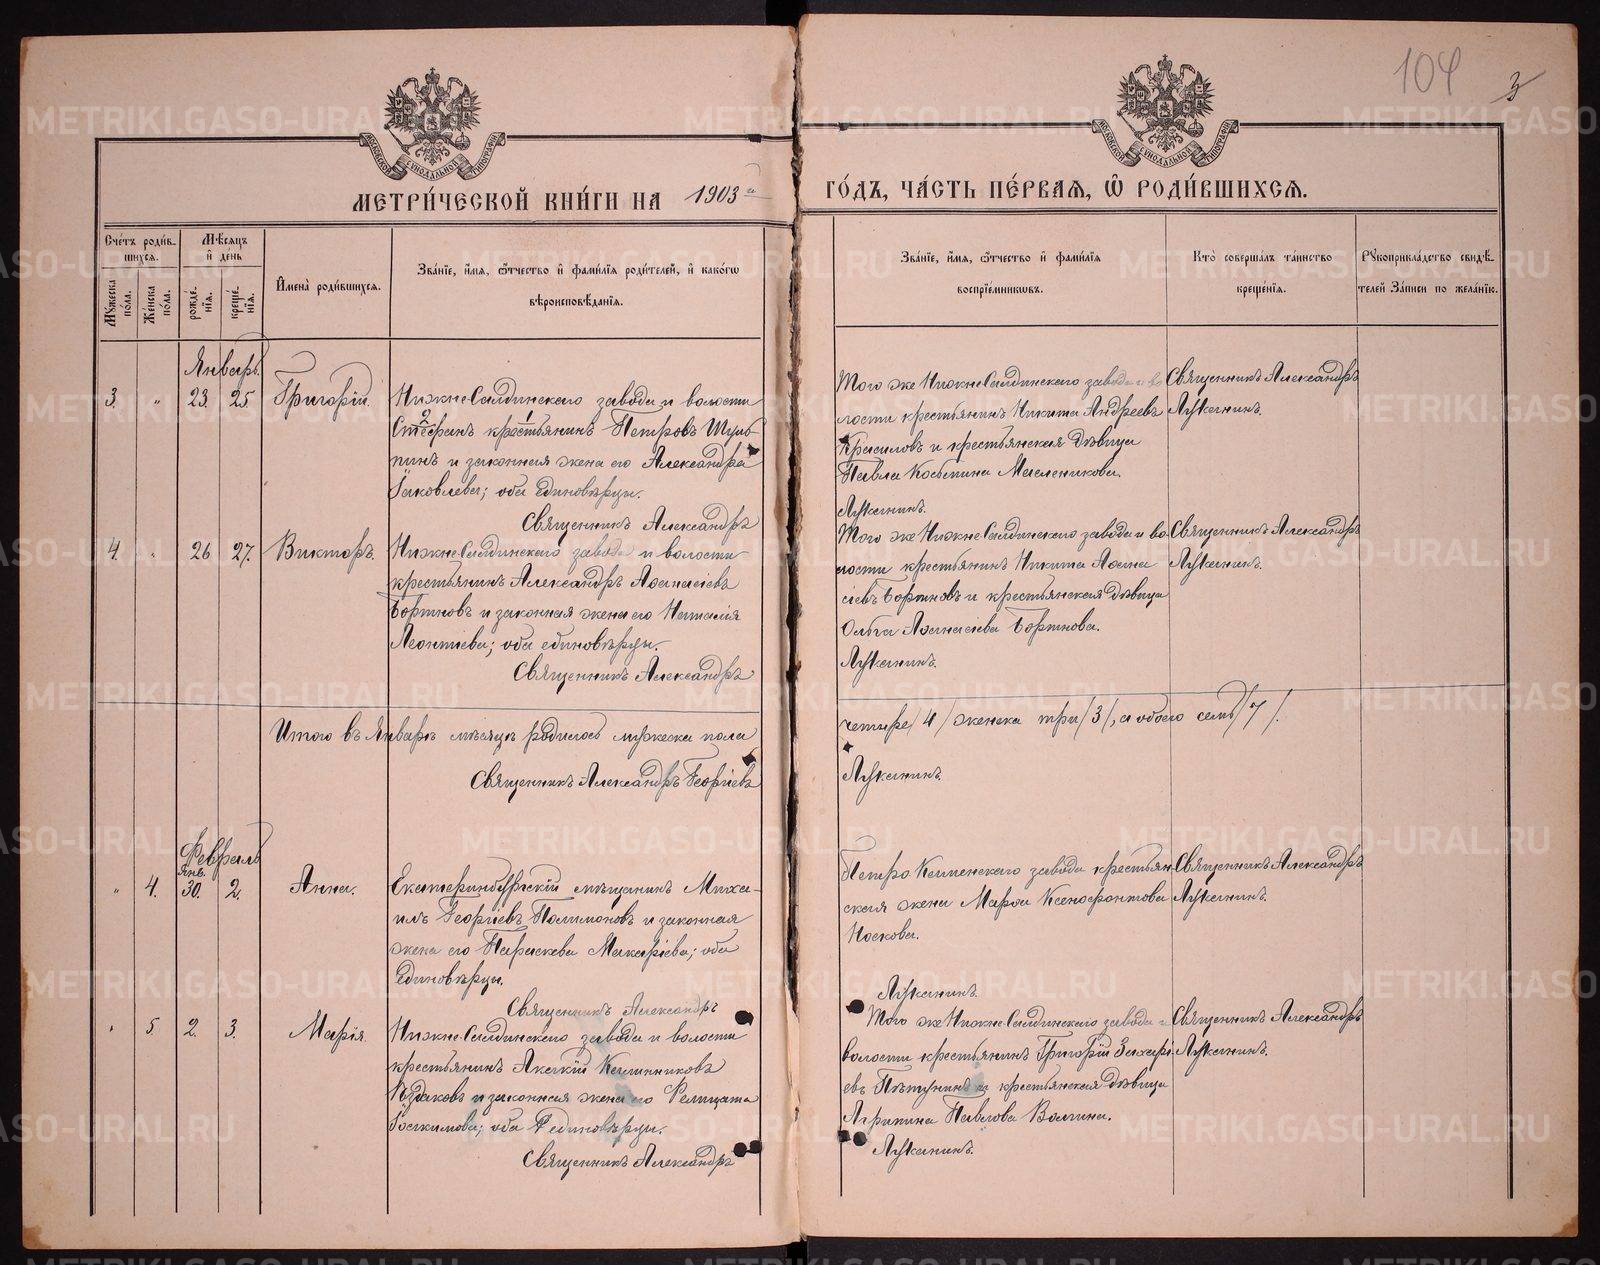 104 3
МОСКОВСКОЙ СѴНОДАЛЬНОЙ ТИПОГРАФІИ
МОСКОВСКОЙ СѴНОДАЛЬНОЙ ТИПОГРАФІИ
МЕТРИ́ЧЕСКОЙ КНИ́ГИ НА 1903 ГО́ДЪ, ЧА́СТЬ ПЕ́РВАѦ, Ѡ҆ РОДИ́ВШИХСѦ.
Сче́тъ роди́в-
шихсѧ.
Мѹ́жеска по́ла.
Же́нска по́ла.
Мѣ́сѧцъ
и҆ де́нь
рожде́-
нїѧ.
креще́-
нїѧ.
И҆мена̀ роди́вшихсѧ.
Зва́нїе, и҆́мѧ, ѻ҆́тчество и҆ фами́лїѧ роди́телей, и҆ како́гѡ
вѣроисповѣ́данїѧ.
Зва́нїе, и҆́мѧ, ѻ҆́тчество и҆ фами́лїѧ
воспрїе́мникѡвъ.
Кто̀ соверша́лъ та́инство
креще́нїѧ.
Рѹкоприкла́дство свидѣ́-
телей За́писи по жела́нїю.
Январь.
3. " 23. 25. Григорій.
Нижне-Салдинскаго завода и волости
2 1
Стефанъ крестьянинъ Петровъ Шуль-
пинъ и законная жена его Александра
Іаковлева; оба единовѣрцы.
Священникъ Александръ
Того же Нижне-Салдинскаго завода и во
лости крестьянинъ Никита Андреевъ
Красиловъ и крестьянская дѣвица
Павла Косьмина Масленикова.
Лукинъ.
Священникъ Александръ
Лукинъ.
4. " 26 27. Викторъ.
Нижне-Салдинскаго завода и волости
крестьянинъ Александръ Аѳанасіевъ
Бортновъ и законная жена его Наталія
Леонтіева; оба единовѣрцы.
Священникъ Александръ
Того же Нижне-Салдинскаго завода и во
лости крестьянинъ Никита Аѳана
сіевъ Бортновъ и крестьянская дѣвица
Ольга Аѳанасіева Бортнова.
Священникъ Александръ
Итого въ Январѣ мѣсяцѣ родилось мужеска пола
четыре /4/ женска три /3/, а обоего семь /7/.
Священникъ Александръ Георгіевъ
Февраль
Янв.
" 4. 30. 2. Анна.
Екатеринбургскій мѣщанинъ Миха-
илъ Георгіевъ Филимоновъ и законная
жена его Параскева Макаріева; оба
единовѣрцы.
Священникъ Александръ
Петро-Каменскаго завода крестьян
ская жена Марѳа Ксенофонтова
Носкова.
Священникъ Александръ
" 5 2. 3. Марія.
Нижне-Салдинскаго завода и волости
крестьянинъ Акакій Каллиниковъ
и законная жена его Фелицата
Іоакимова; оба единовѣрцы.
Священникъ Александръ
Того же Нижне-Салдинскаго завода и
волости крестьянинъ Григорій Захарі
евъ Пѣтунинъ и крестьянская дѣвица
Агрипина Павлова Волгина.
Священникъ Александръ
METRIKI.GASO-URAL.RU